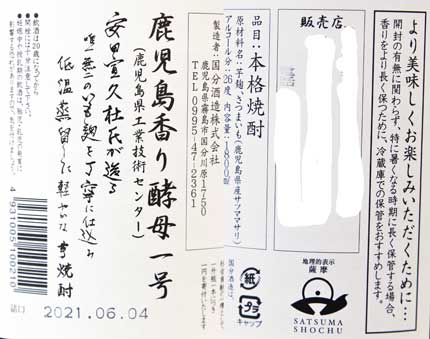 より美味しくお楽しみいただくために…
開封の有無に関わらず、特に暑くなる時期に長く保管する場合、
香りをより長く保つために、冷蔵庫での保管をおすすめします。
販売店
地理的表示
薩摩
SATSUMA
SHOCHU
品目:本格焼酎
原材料名:芋麹、さつまいも(鹿児島県産サツママサリ)
アルコール分:26度 内容量:1800ml
製造者:国分酒造株式会社
鹿児島県霧島市国分川原1750
TEL 0995-47-2361
国分酒造は、
一升瓶一本につき
一円を寄付いたします
紙
キャップ
鹿児島香り酵母一号
(鹿児島県工業技術センター)
安田宣久杜氏が造る
唯一無二のいも麹を丁寧に仕込み
低温蒸留した軽やかな芋焼酎
●飲酒は20歳になってから。
●開栓には十分注意して下さい。
●妊娠中や授乳期の飲酒は、胎児・乳児の発育に
影響する恐れがありますので、気を付けましょう。
4931005100210
詰口 2021.06.04